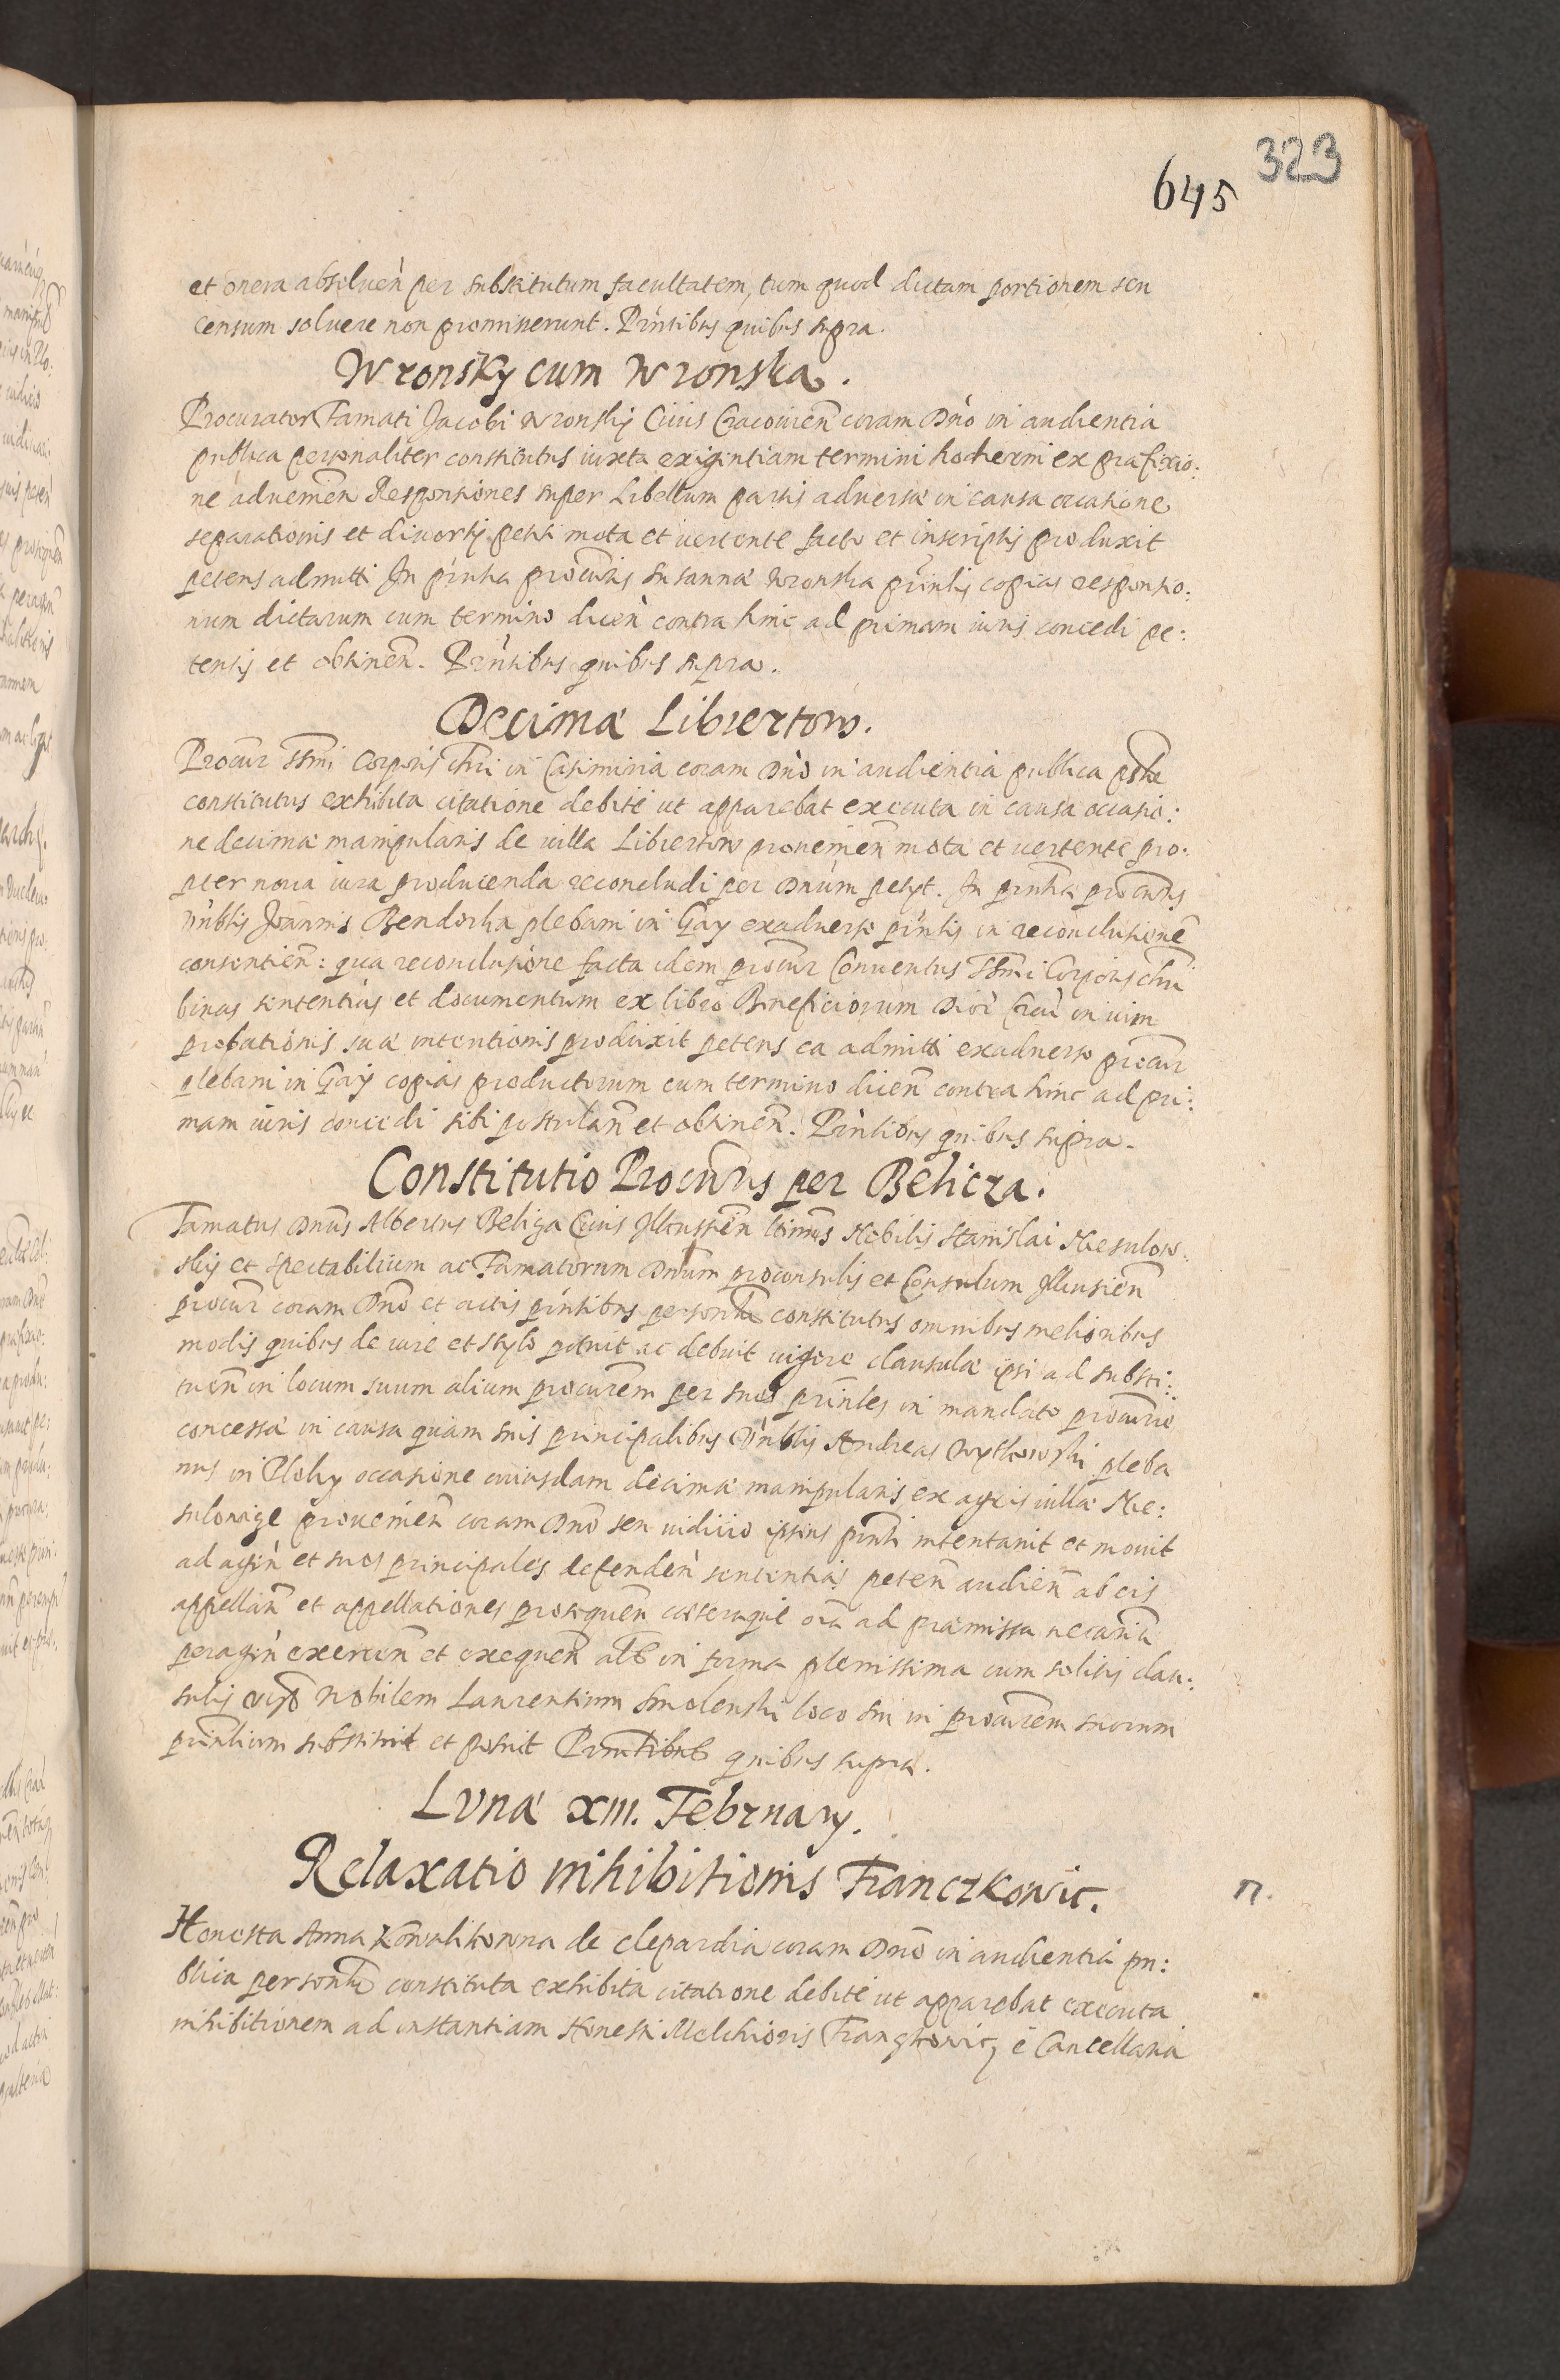 323
645
et onera absoluen̄ per substitutum facultatem, tum quod dictam portionem seu
censum soluere non promiserunt. Pn̄tibus quibus supra.
Wronsky cum Wronska.
Procurator Famati Jacobi Wronskÿ Ciuis Cracouien̄ coram Dno in audientia
publica personaliter constitutus iuxta exigentiam termini hodierni ex præfixio:
ne aduenien̄ Responsiones super Libellum partis aduersæ in causa occasione
separationis et diuortÿ petiti mota et uertente facto et inscriptis produxit
petens admitti In pn̄tia procuris Susannæ Wronska prn̄lis copias responsio:
num dictarum cum termino dicen̄ contra hinc ad primam iuris concedi pe:
tentis et obtinen̄. Pn̄tibus quibus supra.
Decimæ Libiertow.
Procur̄ SSmi Corporis Chri in Casimiria coram Dno in audientia publica psonlr
constitutus exhibita citatione debite ut apparebat executa in causa occasio:
ne decimæ manipularis de uilla Libiertow prouenien̄ mota et uertente pro:
pter noua iura producenda reconcludi per Dnum petyt. In pn̄tia procuris
Vn̄blis Joannis Bendorka plebani in Gay exaduerso pn̄tis in reconclusionē
consentien̄: qua reconclusione facta idem procur̄ Conuentus SSmi Corporis Chri
binas sententias et documentum ex libro Beneficiorum Dioc̄ Crac̄ in uim
probationis suæ intentionis produxit petens ea admitti exaduerso procur̄
plebani in Gaÿ copias productorum cum termino dicen̄ contra hinc ad pri:
mam iuris concedi sibi postulan̄ et obtinen̄. Pn̄tibus quibus supra.
Constitutio Procuris per Belicza.
Famatus Dnus Albertus Beliga Ciuis Ilkussien̄ ltimus Nobilis Stanislai Niesulow
skÿ et spectabilium ac Famatorum Dnum proconsulis et Consulum Ilkusien̄
procur̄ coram Dno et actis pn̄tibus personlr constitutus omnibus melioribus
modis quibus de iure et stylo potuit ac debuit uigore clausulæ ipsi ad substi:
tuen̄ in locum suum alium procurem per suos prn̄les in mandato procurio
concessæ in causa quam suis principalibus Vn̄blis Andreas Wytkowski pleba
nus in Ploky occasione cuiusdam decimæ manipularis ex agris uillæ Nie:
sulowige prouenien̄ coram Dno seu iudicio ipsius pn̄ti intentauit et mouit
ad agen̄ et suos principales defenden̄ sententias peten̄ audien̄ ab eis
appellan̄ et appellationes prosequen̄ cæteraque oīa ad præmissa necaria
peragen̄ exercen̄ et exequen̄ alr in forma plenissima cum solitis clau:
sulis nobilem Laurentium Smolenski loco sui in procurem suorum
prn̄lium substituit et posuit Prn̄tibus quibus supra.
Lunæ XIII. February.
Relaxatio inhibitionis Franczkowic.
n.
Honesta Anna Kowalikowna de Clepardia coram Dno in audientia pu:
blica personlr constituta exhibita citatione debite ut apparebat executa
inhibitionem ad instantiam Honesti Melchioris Frangkowic, è Cancellaria